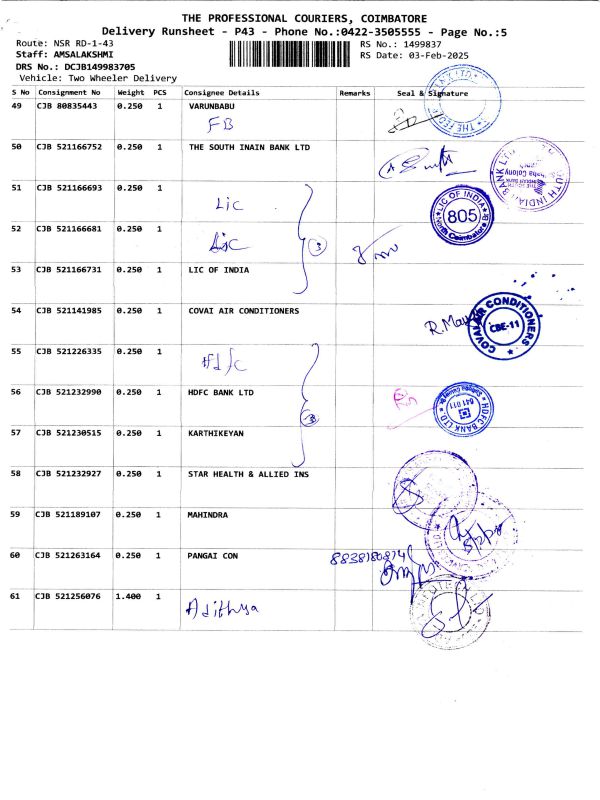 THE PROFESSIONAL COURIERS, COIMBATORE
Delivery Runsheet - P43 - Phone No.:0422-3505555 - Page No.:5
Route: NSR RD-1-43
RS No.: 1499837
Staff: AMSALAKSHMI
RS Date: 03-Feb-2025
DRS No.: DCJB149983705
Vehicle: Two Wheeler Delivery
S No Consignment No Weight PCS Consignee Details Remarks Seal & Signature
49 CJB 80835443 0.250 1 VARUNBABU
FB
50 CJB 521166752 0.250 1 THE SOUTH INAIN BANK LTD
51 CJB 521166693 0.250 1
Lic
LIC OF INDIA
805
North Coimbatore
52 CJB 521166681 0.250 1
Lic
3
53 CJB 521166731 0.250 1 LIC OF INDIA
54 CJB 521141985 0.250 1 COVAI AIR CONDITIONERS
COVAI AIR CONDITIONERS
CBE-11
55 CJB 521226335 0.250 1
Hdfc
56 CJB 521232990 0.250 1 HDFC BANK LTD
3
HDFC BANK LTD
641 011
57 CJB 521230515 0.250 1 KARTHIKEYAN
58 CJB 521232927 0.250 1 STAR HEALTH & ALLIED INS
59 CJB 521189107 0.250 1 MAHINDRA
60 CJB 521263164 0.250 1 PANGAI CON
61 CJB 521256076 1.400 1
Adithya